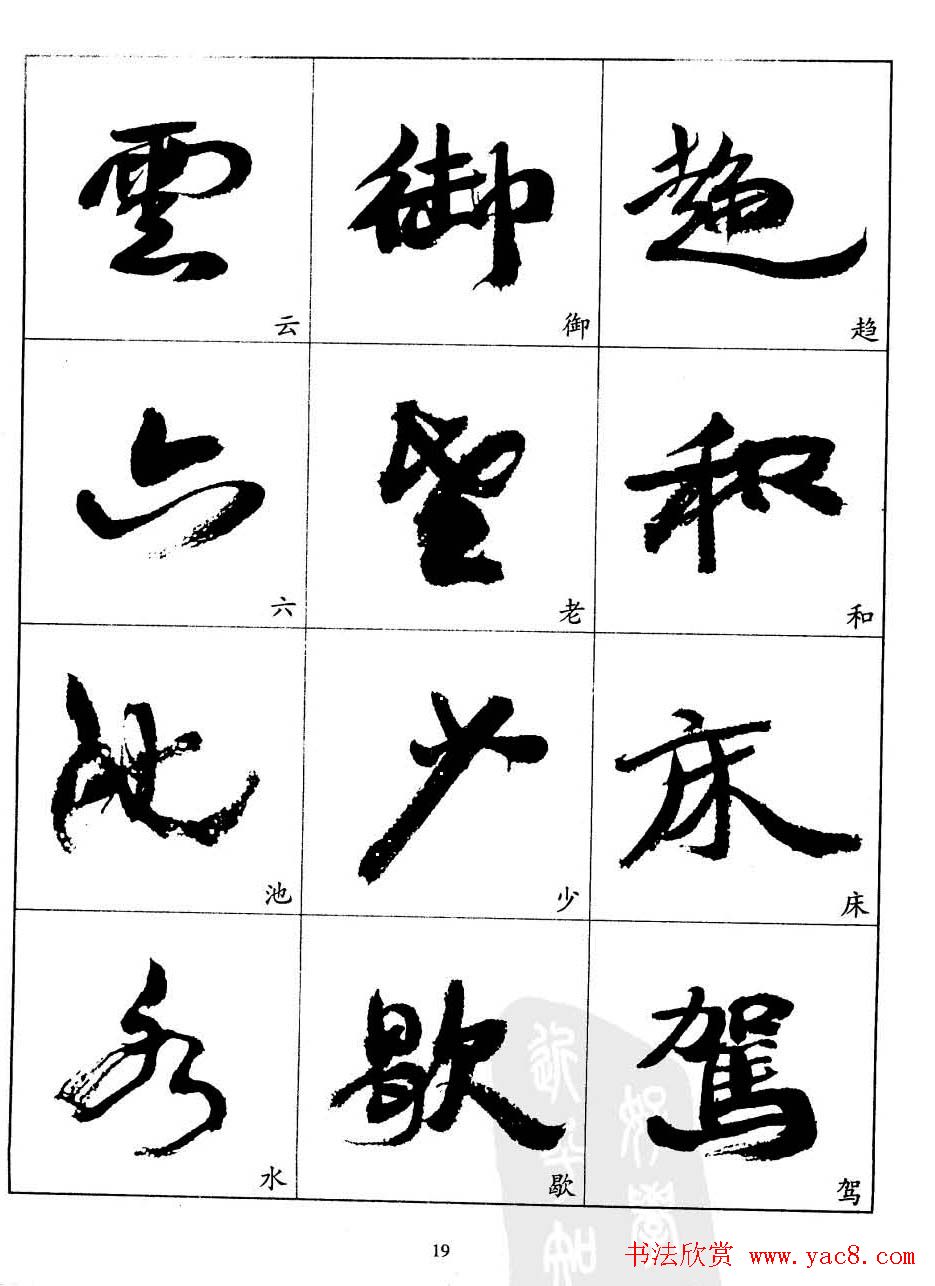 雲 御 趋
云 御 趋
六 望 和
六 老 和
池 少 床
池 少 床
水 歇 駕
水 歇 驾
19
书法欣赏 www.yac8.com